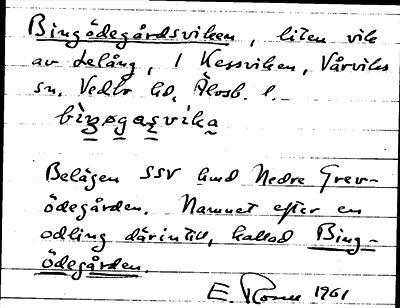 Bingödegårdsviken, liten vik
av Lelång, i Kessviken, Vårviks
sn, Vedbo hd, Älvsb. l.
bìŋøgaṣvika
Belägen SSV hmd Nedre Grev-
ödegården. Namnet efter en
odling därintill, kallad Bing-
ödegården.
E. 1961